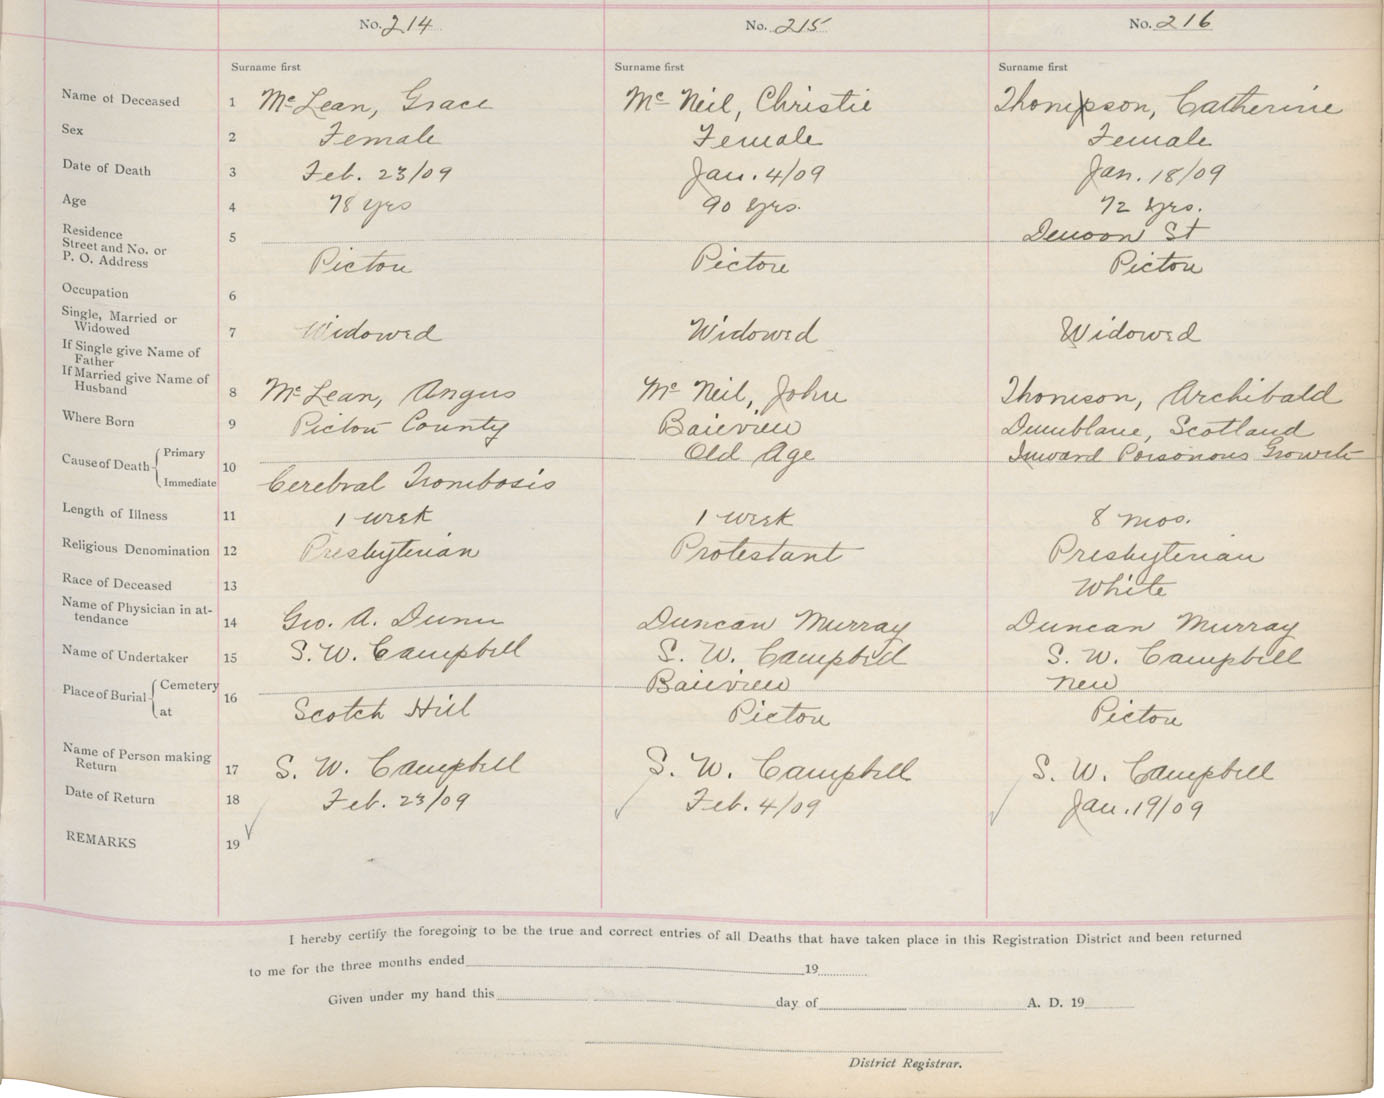 No. 214 No. 215 No. 216
Surname first Surname first Surname first
Name of Deceased 1 McLean, Grace McNeil, Christie Thompson, Catherine
Sex 2 Female Female Female
Date of Death 3 Feb. 23/09 Jan. 4/09 Jan. 18/09
Age 4 78 yrs 90 yrs. 72 yrs.
Residence 5 Denoon St
Street and No. or
P. O. Address Pictou Pictou Pictou
Occupation 6
Single, Married or
Widowed 7 Widowed Widowed Widowed
If Single give Name of
Father
If Married give Name of
Husband 8 McLean, Angus McNeil, John Thomson, Archibald
Where Born 9 Pictou County Baieview Dumblane, Scotland
Cause of Death Primary 10 Old Age Inward Poisonous Growth
Immediate Cerebral Trombosis
Length of Illness 11 1 week 1 week 8 mos.
Religious Denomination 12 Presbyterian Protestant Presbyterian
Race of Deceased 13 White
Name of Physician in at-
tendance 14 Geo. A. Dunn Duncan Murray Duncan Murray
Name of Undertaker 15 S. W. Campbell S. W. Campbell S. W. Campbell
Place of Burial Cemetery 16 Baieview New
at Scotch Hill Pictou Pictou
Name of Person making
Return 17 S. W. Campbell S. W. Campbell S. W. Campbell
Date of Return 18 Feb. 23/09 Feb. 4/09 Jan. 19/09
REMARKS 19
I hereby certify the foregoing to be the true and correct entries of all Deaths that have taken place in this Registration District and been returned
to me for the three months ended 19
Given under my hand this day of A. D. 19
District Registrar.